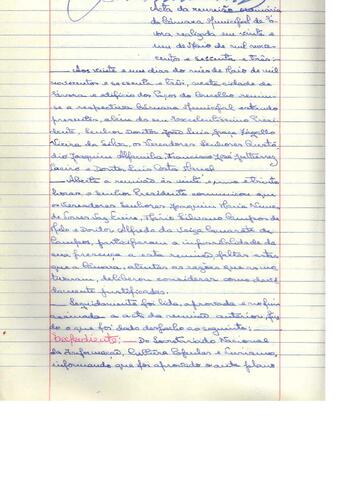 Acta da reunião ordinária
da Câmara Municipal de É-
vora realizada em vinte e
um de Maio de mil nove-
centos e sessenta e três:
Aos vinte e um dias do mês de Maio de mil
novecentos e sessenta e três, nesta cidade de
Évora e edifício dos Paços do Concelho reuniu-
se a respectiva Câmara Municipal estando
presentes, além do seu Excelentíssimo Presi-
dente, Senhor Doutor João Luís
Vieira da Silva, os Vereadores Senhores Custó-
dio Joaquim Alfamilha, Francisco José Gutierrez
e Doutor Luís Costa
Aberta a reunião às vinte e uma e trinta
horas o Senhor Presidente comunicou que
os Vereadores Senhores Joaquim Maria Nunes
de Mário Silvano Campos de
Melo e Doutor Alfredo da Veiga Camarate de
Campos, participaram a impossibilidade da
sua presença a esta reunião faltas estas
que a Câmara, atentas as razões que as mo-
tivaram, deliberou considerar como devi-
damente justificadas.
Seguidamente foi lida, aprovada e
assinada a acta da reunião anterior,
do o que foi dado despacho ao seguinte:
Expediente: — Do Secretariado Nacional
da Informação, Cultura Popular e Turismo,
informando que foi aprovado o ante plano